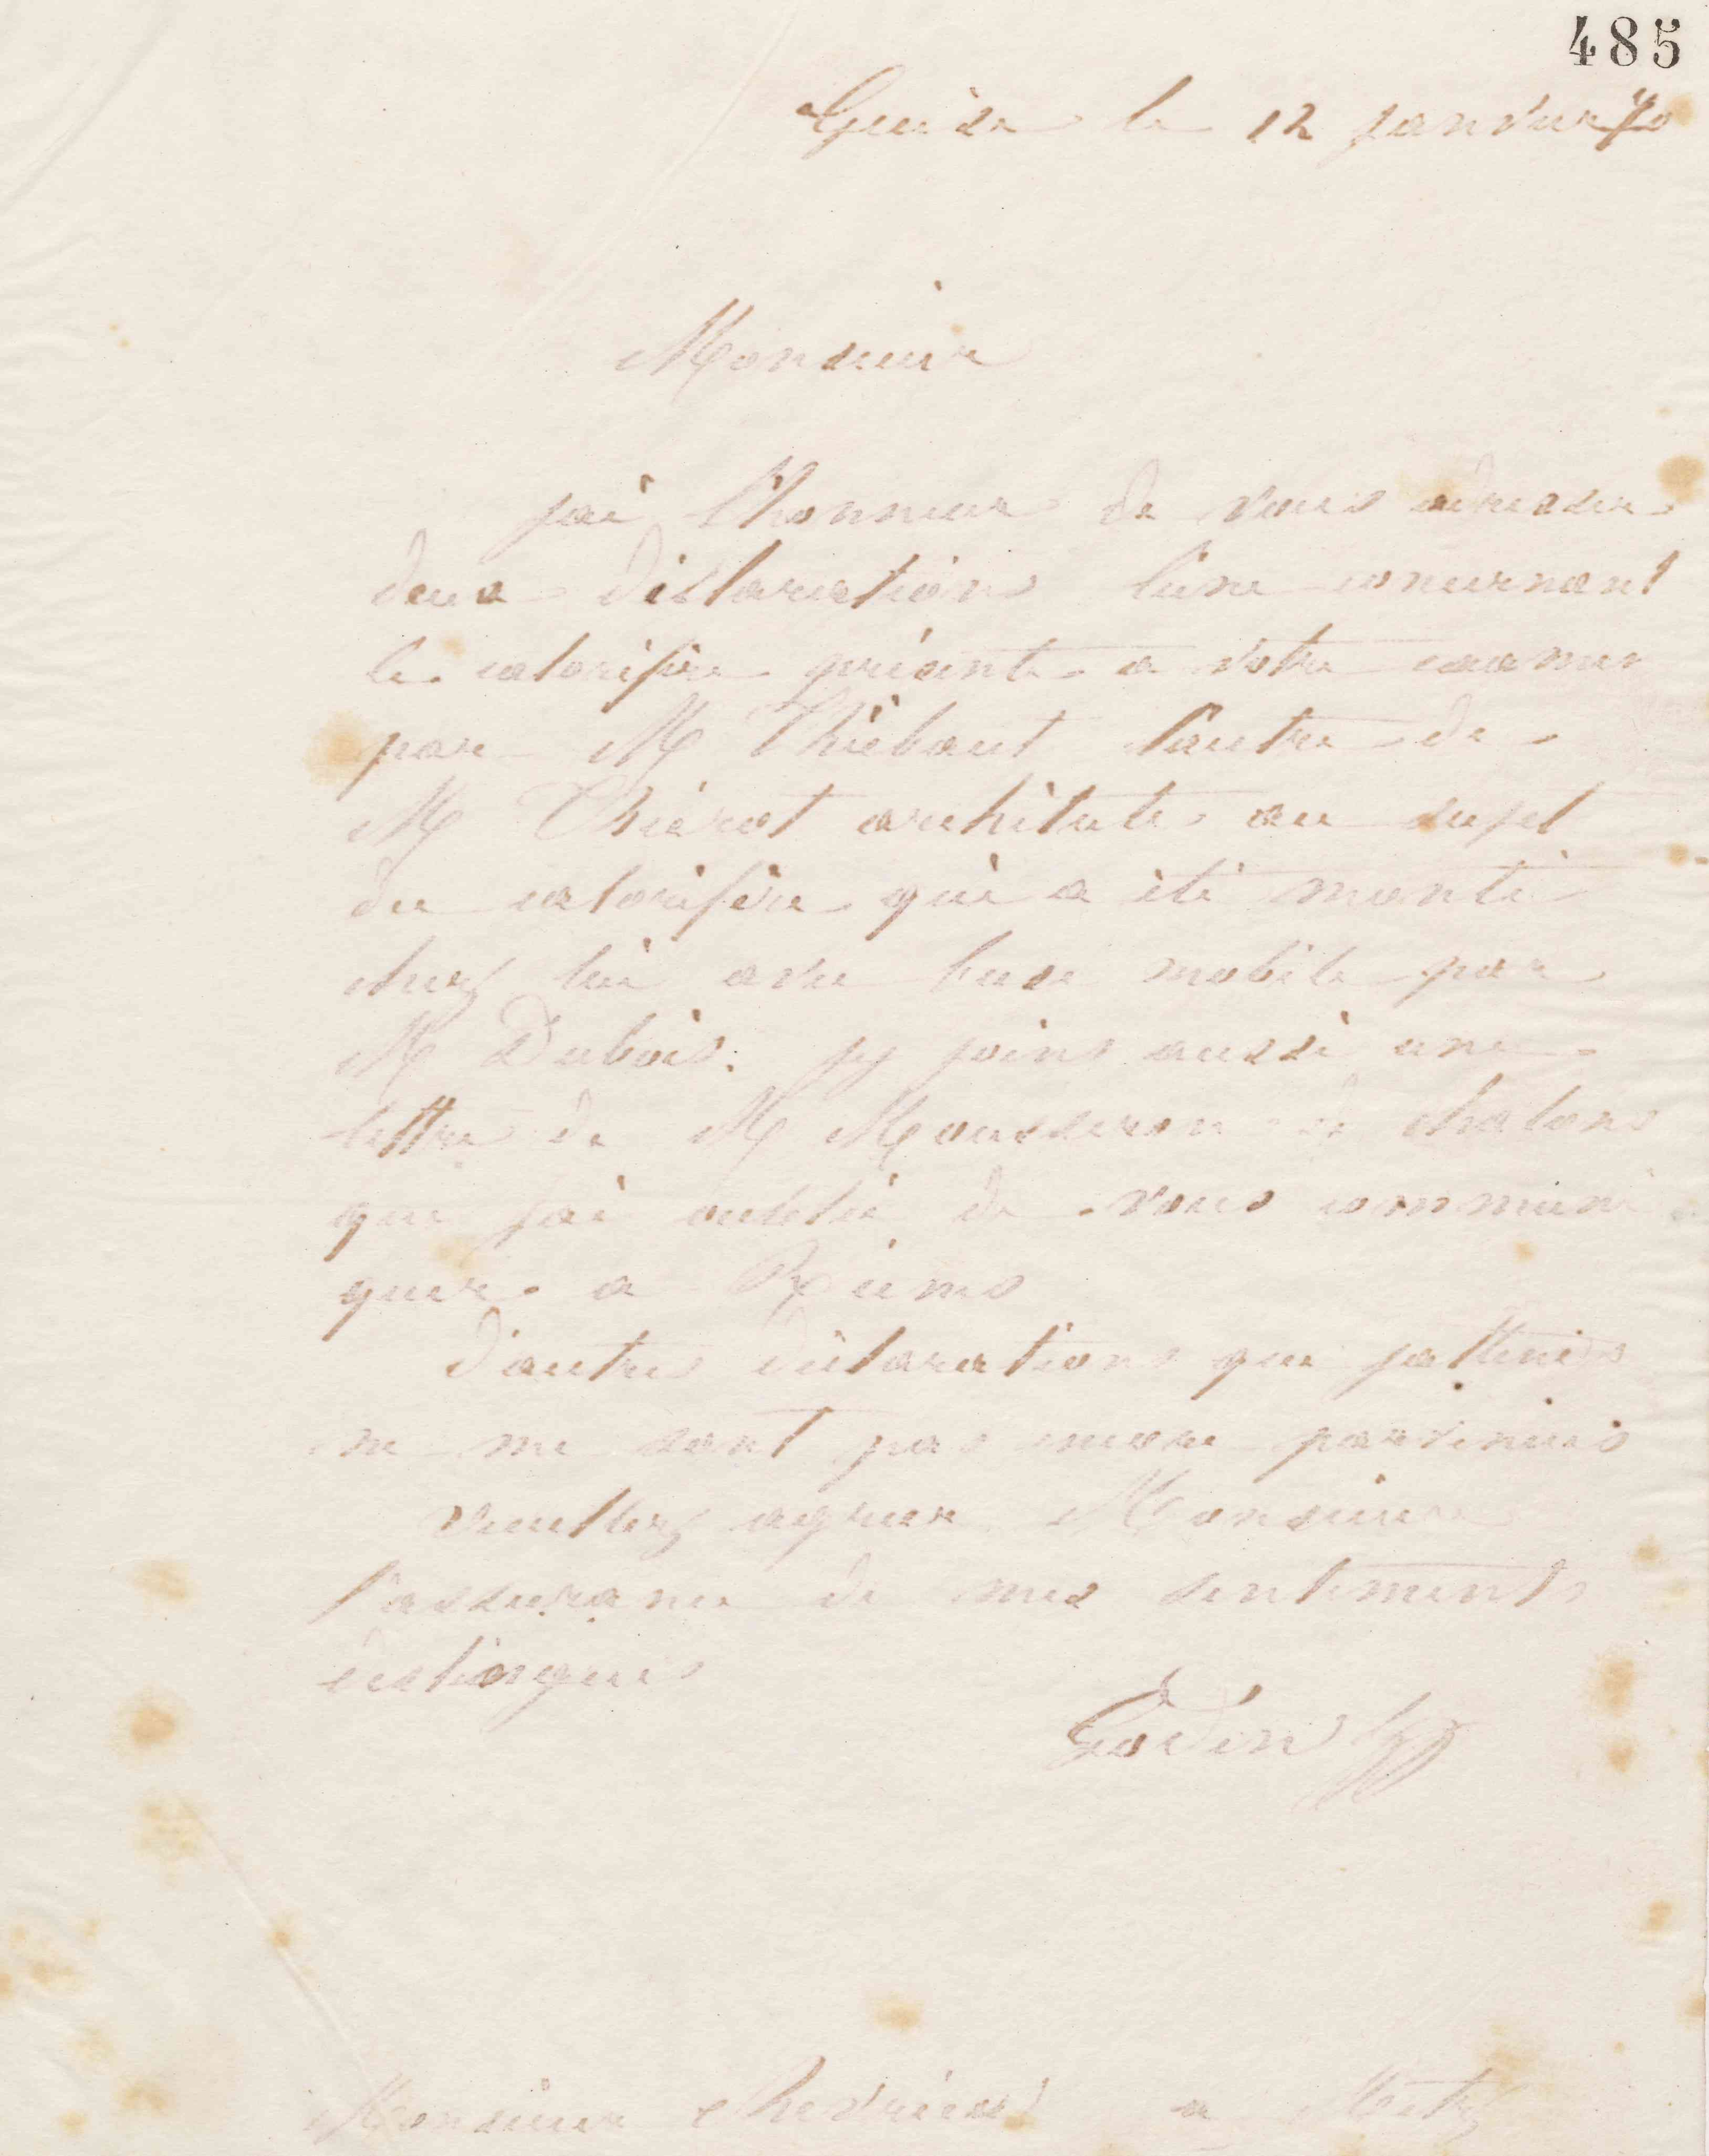 485
Guise le 12 janvier 70
Monsieur
jai l'honneur de vous adresser
deux déclarations l'une concernant
le calorifère présenté a votre examen
par M Thiébaut l'autre de
M Thiérot architecte au sujet
du calorifère qui a été monté
chez lui avec buse mobile par
M Dubois. jy joins aussi une
lettre de M Mousseron de chalons
que jai oublié de vous communi
quer a Reims
D'autres déclarations que jattends
ne me sont pas encore parvenues
veuillez agréer Monsieur
l'assurance de mes sentiments
distingués
Godin
Monsieur a Metz